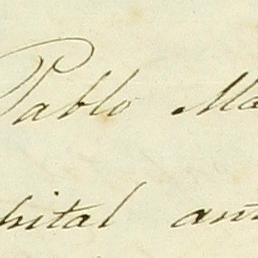 Pablo Ma
pital an